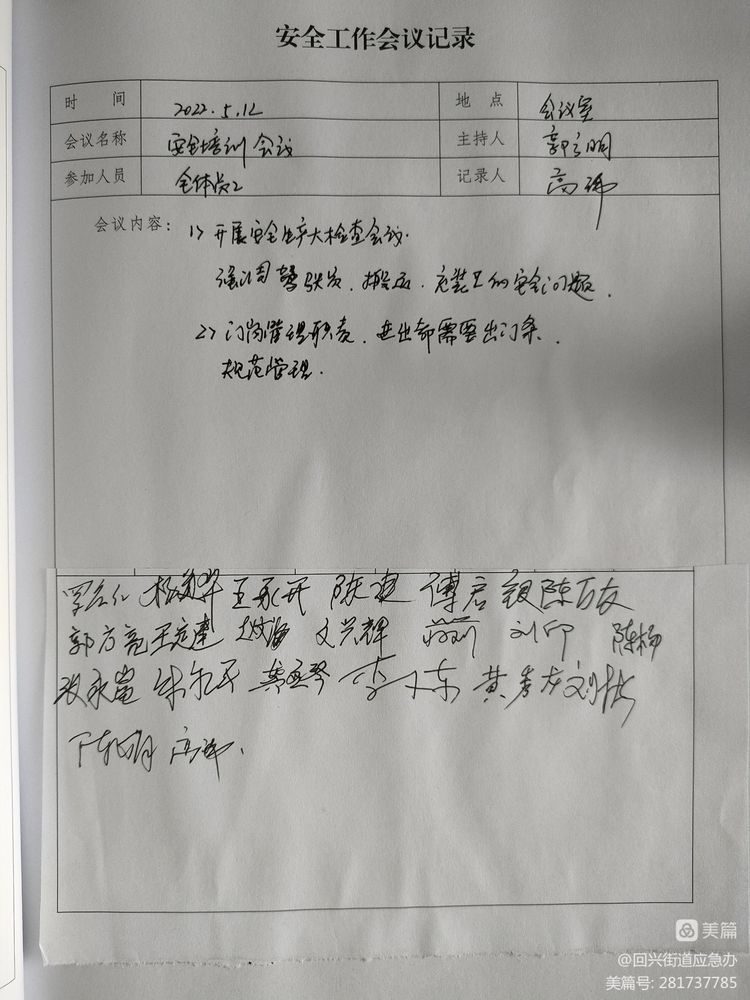 安全工作会议记录
时 间 2022.5.12 地 点 会议室
会议名称 安全培训会议 主持人
参加人员 全体员工 记录人 高伟
会议内容： 1> 开展安全生产大检查会议.
强调 驾驶员、搬运、安装工的安全问题.
2> 门岗管理职责、进出都需要出门条、
规范管理.
王永开 陈建 傅启银 陈万友
郭方亮 王定建 赵海 文兴辉 蒋刚 刘印 陈杨
张永嵩 朱尔平 龚亚琴 李小东 黄孝友 刘彬
高伟.
美篇
@回兴街道应急办
美篇号: 281737785